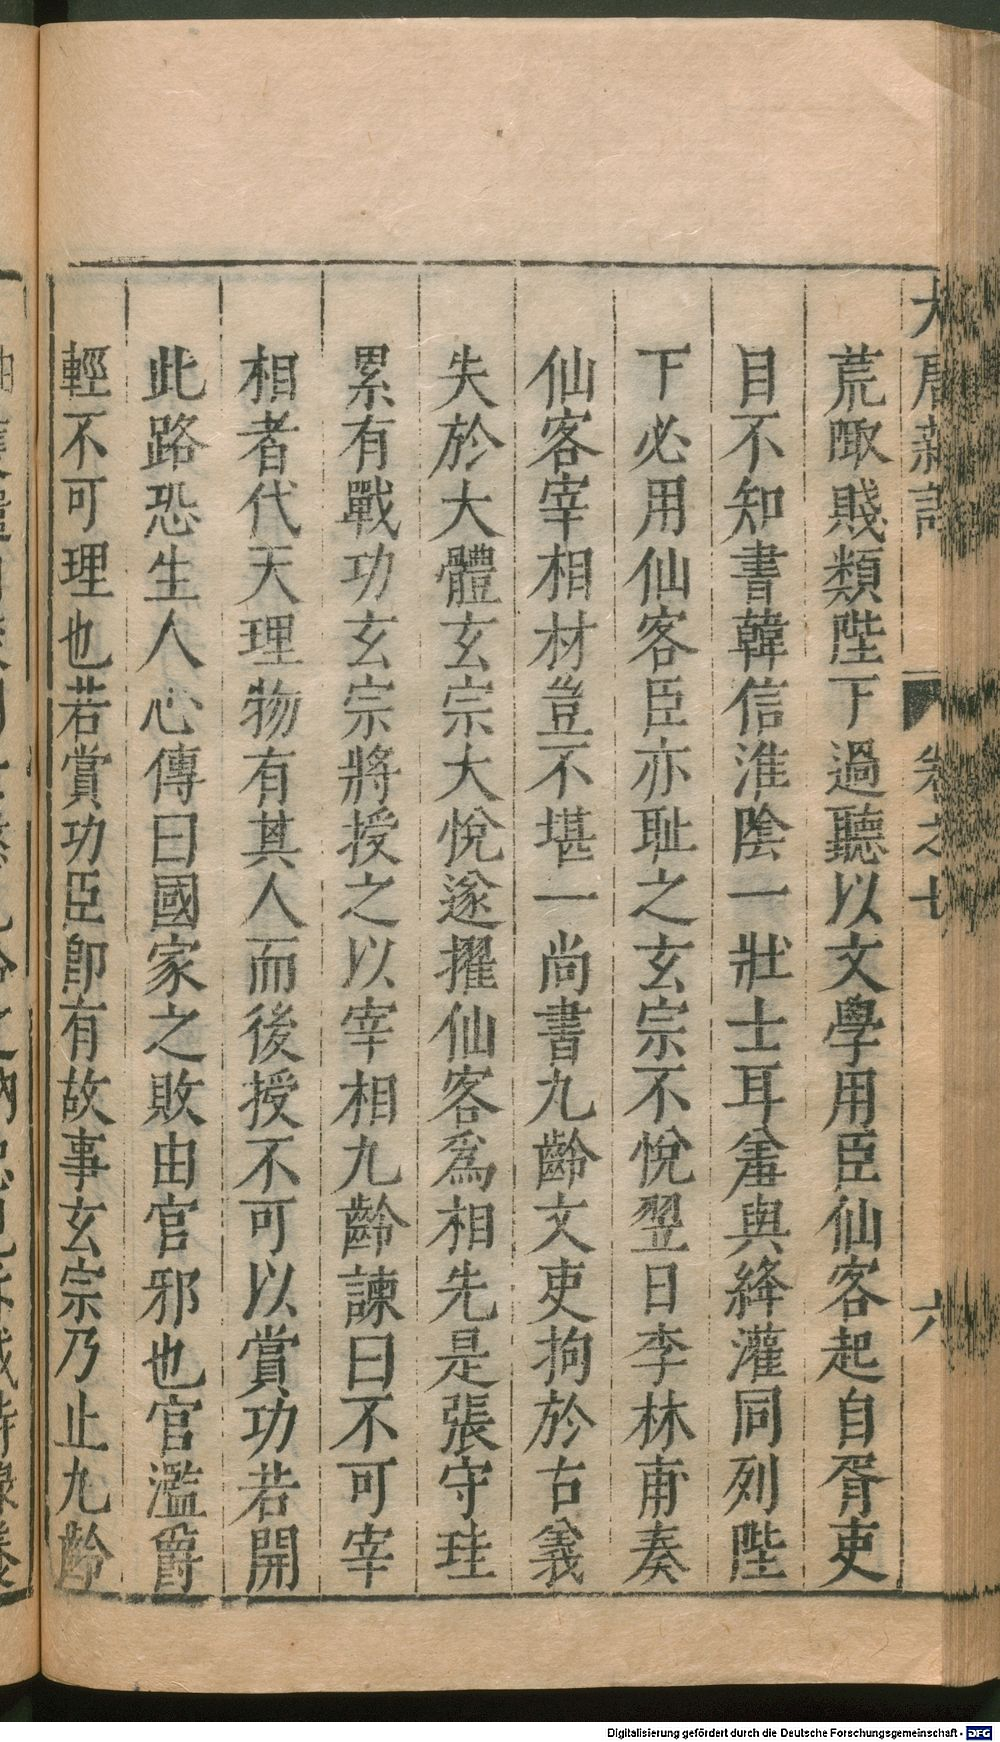 大唐新語 卷之七 六
荒陬賤類陛下過聽以文學用臣仙客起自胥吏
目不知書韓信淮陰一壯士耳羞與絳灌同列陛
下必用仙客臣亦耻之玄宗不悅翌日李林甫奏
仙客宰相材豈不堪一尚書九齡文吏拘於古義
失於大體玄宗大悅遂擢仙客爲相先是張守珪
累有戰功玄宗將授之以宰相九齡諫曰不可宰
相者代天理物有其人而後授不可以賞功若開
此路恐生人心傳曰國家之敗由官邪也官濫爵
輕不可理也若賞功臣卽有故事玄宗乃止九齡
Digitalisierung gefördert durch die Deutsche Forschungsgemeinschaft - DFG